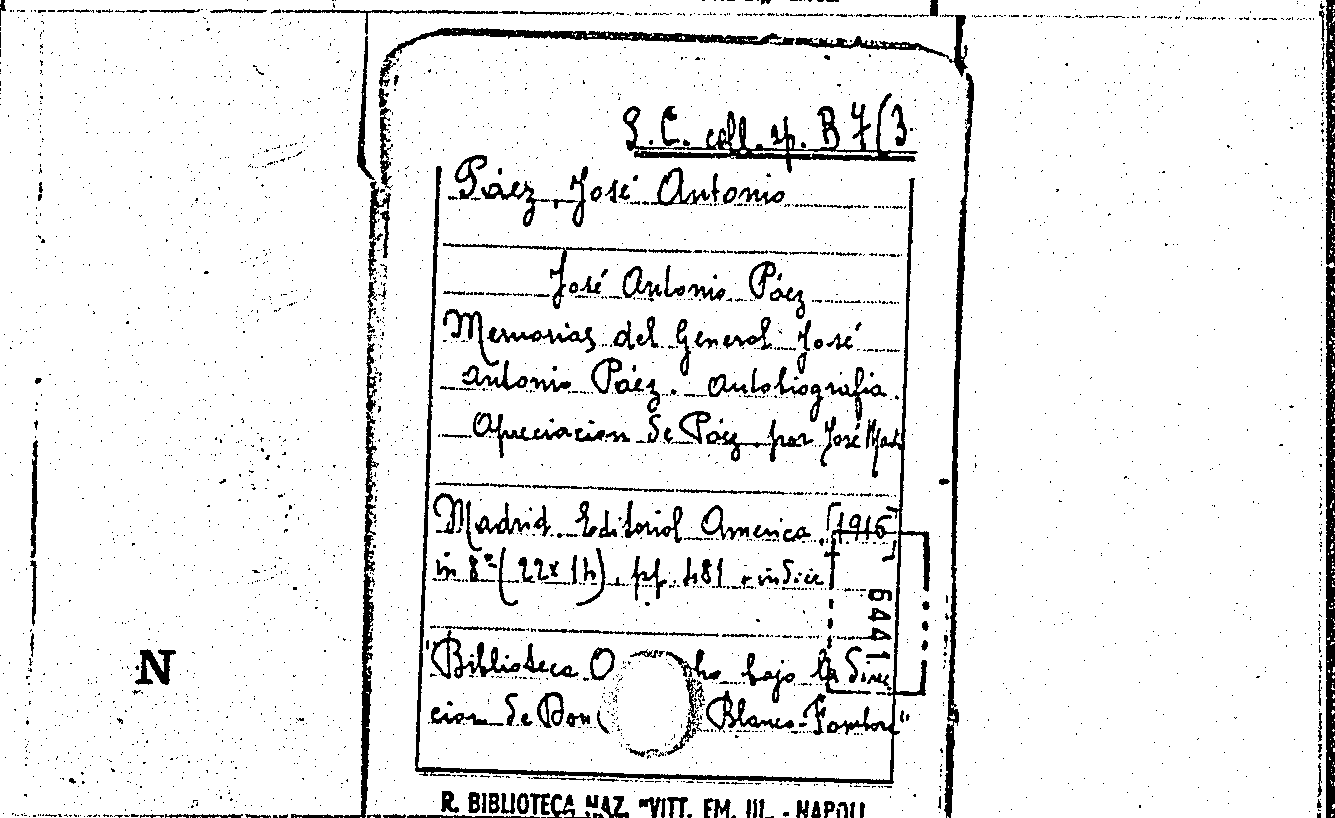 S. C. coll. sp. B 7(3.
Páez, José Antonio
José Antonio Páez
Memorias del General José
Antonio Páez. Autobiografia.
Apreciacion de Páez, por José Martí
Madrid. Editorial America, [1916]
in 8º (22x14), pp. 481 + indice
6441
"Biblioteca bajo la direc
cion de Don Blanco-Fombona"
N
R. BIBLIOTECA NAZ. "VITT. EM. III. - NAPOLI